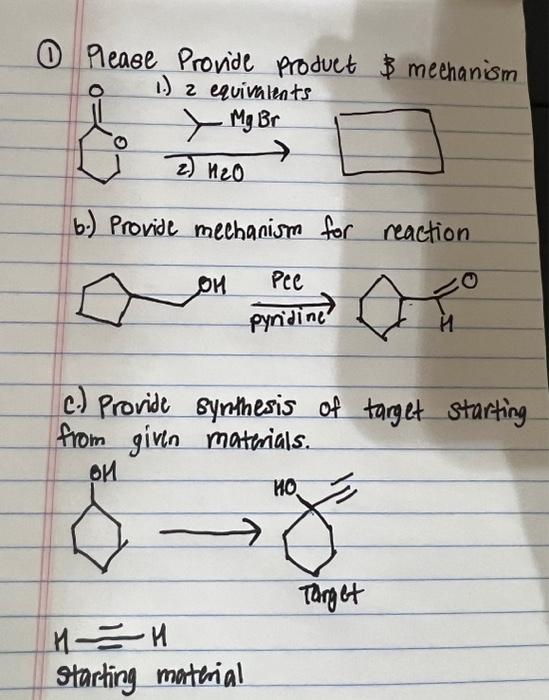 ① Please Provide product & mechanism
1.) 2 equivalents
O
MgBr
O
2.) H2O
b.) Provide mechanism for reaction
OH
PCC
O
pyridine
H
c.) Provide synthesis of target starting
from given materials.
OH
HO
Target
H H
Starting material